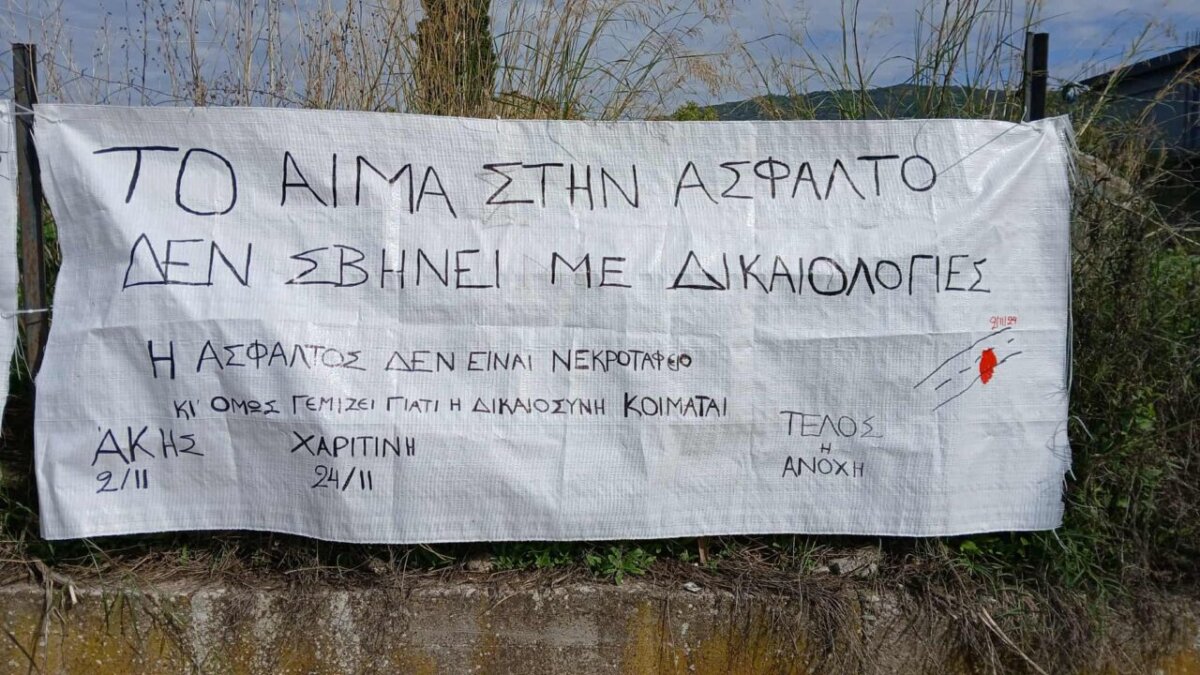 ΤΟ ΑΙΜΑ ΣΤΗΝ ΑΣΦΑΛΤΟ
ΔΕΝ ΣΒΗΝΕΙ ΜΕ ΔΙΚΑΙΟΛΟΓΙΕΣ
2/11/24
Η ΑΣΦΑΛΤΟΣ ΔΕΝ ΕΙΝΑΙ ΝΕΚΡΟΤΑΦΕΙΟ
ΚΙ' ΟΜΩΣ ΓΕΜΙΖΕΙ ΓΙΑΤΙ Η ΔΙΚΑΙΟΣΥΝΗ ΚΟΙΜΑΤΑΙ
ΆΚΗΣ ΧΑΡΙΤΙΝΗ
2/11 24/11
ΤΕΛΟΣ
Η
ΑΝΟΧΗ